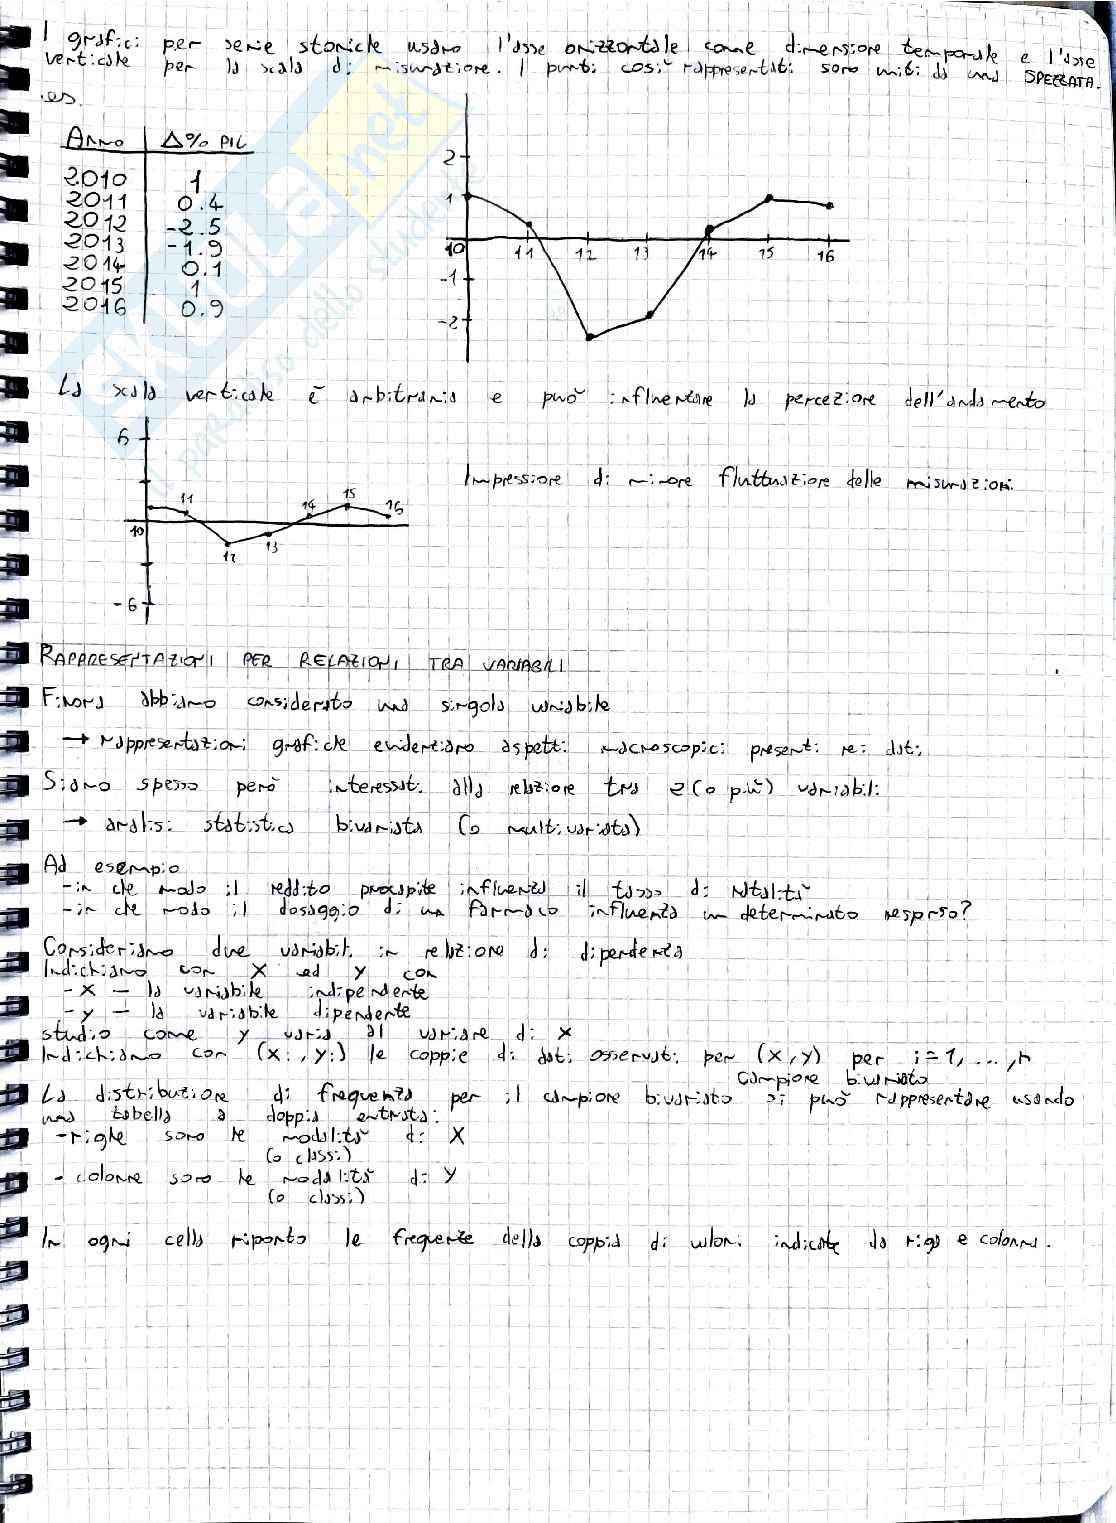 I grafici per serie storiche usano l'asse orizzontale come dimensione temporale e l'asse
verticale per la scala di misurazione. I punti così rappresentati sono uniti da una SPEZZATA.
es.
ANNO Δ% PIL
2010 1
2011 0.4
2012 -2.5
2013 -1.9
2014 0.1
2015 1
2016 0.9
2
1
10 11 12 13 14 15 16
-1
-2
La scala verticale è arbitraria e può influentare la percezione dell'andamento
6
10 11 12 13 14 15 16
-6
Impressione di minore fluttuazione delle misurazioni.
RAPPRESENTAZIONI PER RELAZIONI TRA VARIABILI
Finora abbiamo considerato una singola variabile
→ rappresentazioni grafiche evidenziano aspetti macroscopici presenti nei dati
Siamo spesso però interessati alla relazione tra 2 (o più) variabili
→ analisi statistica bivariata (o multivariata)
Ad esempio
- in che modo il reddito procapite influenza il tasso di natalità
- in che modo il dosaggio di un farmaco influenza un determinato responso?
Consideriamo due variabili in relazione di dipendenza
Indichiamo con X ed Y con
- X — la variabile indipendente
- Y — la variabile dipendente
studio come Y varia al variare di X
Indichiamo con (xi, yi) le coppie di dati osservati per (X, Y) per i = 1, ..., n
campione bivariato
La distribuzione di frequenza per il campione bivariato si può rappresentare usando
una tabella a doppia entrata:
- righe sono le modalità di X
(o classi)
- colonne sono le modalità di Y
(o classi)
In ogni cella riporto le frequenze della coppia di valori indicate da riga e colonna.
skuola.net
il paradiso dello studente